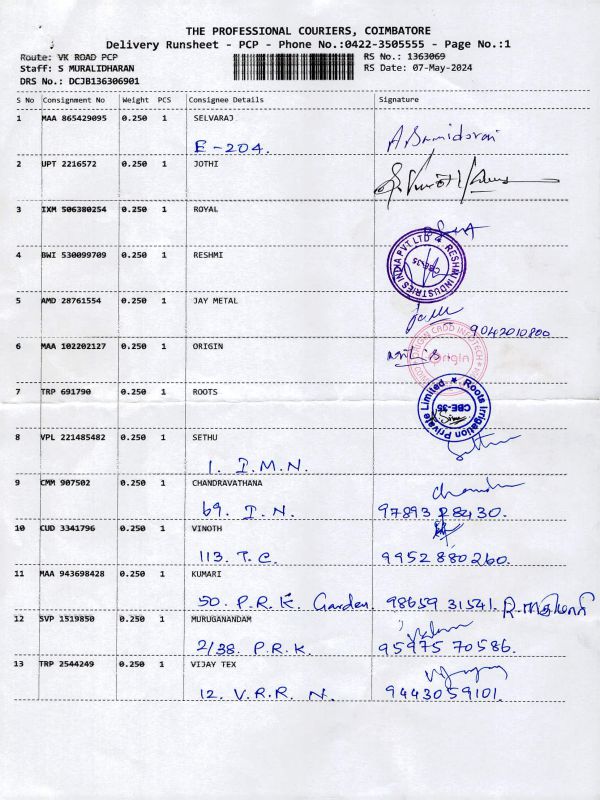 THE PROFESSIONAL COURIERS, COIMBATORE
Delivery Runsheet - PCP - Phone No.:0422-3505555 - Page No.:1
Route: VK ROAD PCP RS No.: 1363069
Staff: S MURALIDHARAN RS Date: 07-May-2024
DRS No.: DCJB136306901
S No Consignment No Weight PCS Consignee Details Signature
1 MAA 865429095 0.250 1 SELVARAJ
E-204.
2 UPT 2216572 0.250 1 JOTHI
3 IXM 506380254 0.250 1 ROYAL
4 BWI 530099709 0.250 1 RESHMI
RESHMI INDUSTRIES INDIA PVT LTD
CBE-35
5 AMD 28761554 0.250 1 JAY METAL
9042010800
6 MAA 102202127 0.250 1 ORIGIN
ORIGIN CADD INFOTECH
origin
7 TRP 691790 0.250 1 ROOTS
Roots Irrigation Private Limited
CBE-35
8 VPL 221485482 0.250 1 SETHU
1. I.M.N.
9 CMM 907502 0.250 1 CHANDRAVATHANA
69. I.N. 97893 28430.
10 CUD 3341796 0.250 1 VINOTH
113. T.C. 9952880260.
11 MAA 943698428 0.250 1 KUMARI
50. P.R.K. Garden. 98659 31541.
12 SVP 1519850 0.250 1 MURUGANANDAM
2/38. P.R.K. 95975 70586.
13 TRP 2544249 0.250 1 VIJAY TEX
12. V.R.R. N. 9443059101.